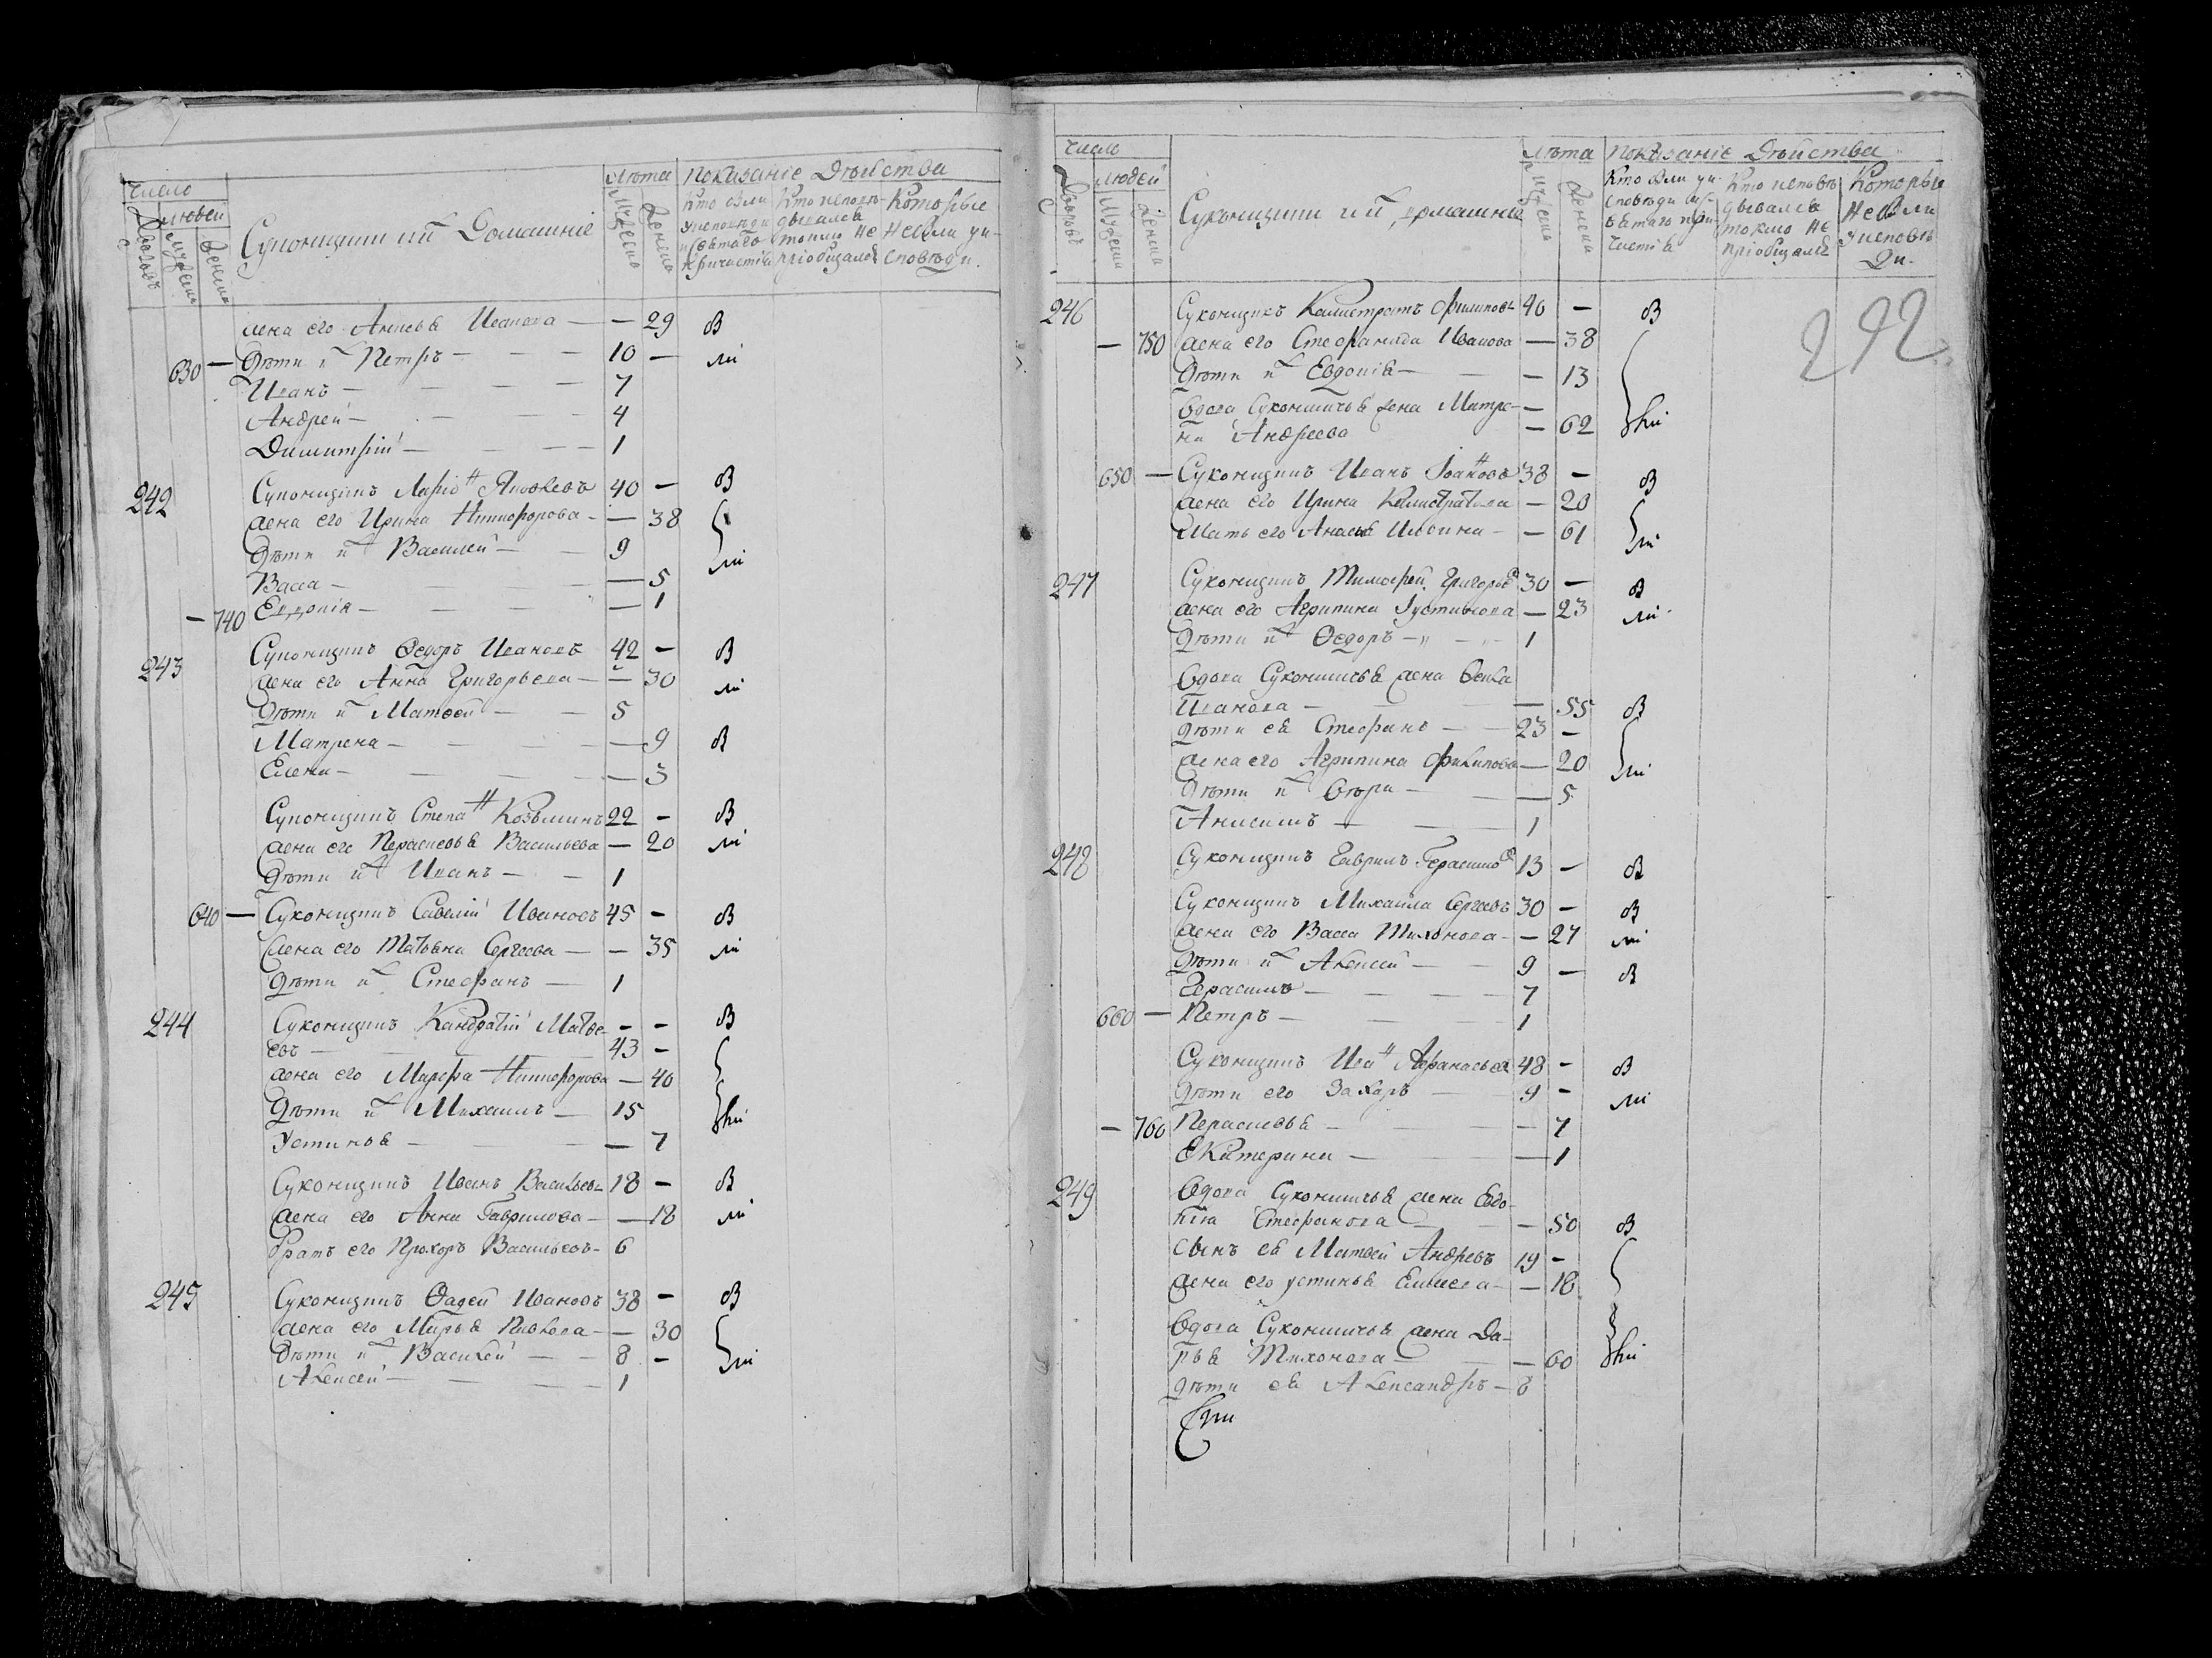 Число
Дворовъ
людей
Мужеска
Женска
Суконщики и ихъ Домашніе
Лѣта
Мужеска
Женска
Показаніе Дѣйства
Кто были у исповѣди и святаго причастія
Кто исповѣдывался токмо не пріобщался
Которые не были у исповѣди
жена его Анисья Иванова — — 29 в
630 — Дѣти ихъ Петръ — 10 — ли
Иванъ — 7
Андрей — 4
Димитрій — 1
242 Суконщикъ Ларіонъ Яковлевъ 40 — в
жена его Ирина Никифорова — — 38
Дѣти ихъ Василей — 9 ли
Васса — — 5
— 740 Евдокія — — 1
243 Суконщикъ Ѳедоръ Ивановъ 42 — в
жена его Анна Григорьева — — 30 ли
Дѣти ихъ Матвей — 5
Матрена — — 9 в
Елена — — 3
Суконщикъ Степанъ Козьминъ 22 — в
жена его Парасковья Васильева — 20 ли
Дѣти ихъ Иванъ — 1
640 — Суконщикъ Савелій Ивановъ 45 — в
жена его Татьяна Сергеева — — 35 ли
Дѣти ихъ Стефанъ — 1
244 Суконщикъ Кандратій Матве- — — в
евъ — 43 —
жена его Марфа Никифорова — 40
Дѣти ихъ Михаилъ — 15 ли
Устинья — — 7
Суконщикъ Иванъ Васильевъ 18 — в
жена его Анна Гаврилова — — 18 ли
Братъ его Прохоръ Васильевъ — 6
245 Суконщикъ Фадей Ивановъ 38 — в
жена его Марья Павлова — — 30
Дѣти ихъ Василей — 8 — ли
Алексей — 1
Число
Дворовъ
людей
Мужеска
Женска
Суконщики и ихъ домашніе
Лѣта
Мужеска
Женска
Показаніе Дѣйства
Кто были у исповѣди и святаго причастія
Кто исповѣдывался токмо не пріобщался
Которые не были у исповѣди
292
246 Суконщикъ Калистратъ Филиповъ 40 — в
— 750 жена его Стефанида Иванова — 38
Дѣти ихъ Евдокія — — 13
вдова Суконшичья жена Матре- —
на Андреева — 62 ли
650 — Суконщикъ Иванъ Ивановъ 38 — в
жена его Ирина Калистратова — 20
Мать его Анисья Ильина — — 61 ли
247 Суконщикъ Тимофей Григорьевъ 30 — в
жена его Агрипина Іустинова — 23 ли
Дѣти ихъ Ѳедоръ — 1
вдова Суконшичья жена Ѳекла
Иванова — — 55 в
дѣти ея Стефанъ — 23 —
жена его Агрипина Филипова — 20 ли
Дѣти ихъ — 5
Анисимъ — 1
248 Суконщикъ Гаврилъ Герасимовъ 13 — в
Суконщикъ Михаила Сергеевъ 30 — в
жена его Васса Тихонова — — 27 ли
Дѣти ихъ Алексей — 9 — в
Герасимъ — 7
660 — Петръ — 1
Суконщикъ Иванъ Афанасьевъ 48 — в
дѣти его Захаръ — 9 — ли
— 760 Параскевья — — 7
Екатерина — — 1
249 вдова Суконшичья жена Евдо-
кія Стефанова — — 50 в
сынъ ея Матвей Андреевъ 19 —
жена его Устинья — 18
вдова Суконшичья жена Да-
рья Тихонова — — 60 ли
дѣти ея Александръ — 8